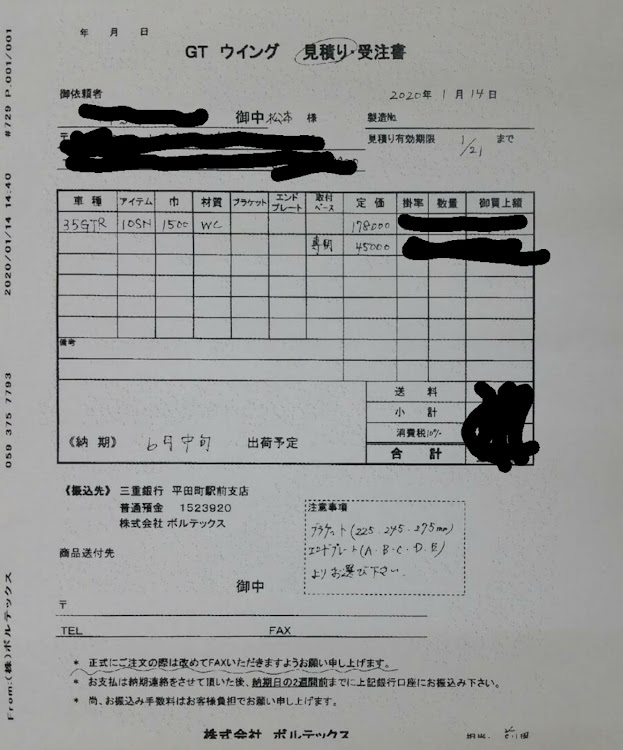 年 月 日
GT ウイング 見積り・受注書
御依頼者
2020年 1月 14日
御中 松本 様
製造No.
〒
見積り有効期限 1/21 まで
車種 アイテム 巾 材質 ブラケット エンドプレート 取付ベース 定価 掛率 数量 御買上額
35GTR 10SN 1500 WC 178000
専用 45000
備考
送料
小計
消費税10%
合計
《納 期》 6月中旬 出荷予定
《振込先》 三重銀行 平田町駅前支店
普通預金 1523920
株式会社 ボルテックス
注意事項
ブラケット(225.245.275mm)
エンドプレート(A.B.C.D.E)
よりお選び下さい.
商品送付先
御中
〒
TEL FAX
* 正式にご注文の際は改めてFAXいただきますようお願い申し上げます。
* お支払は納期連絡をさせて頂いた後、納期日の2週間前までに上記銀行口座にお振込み下さい。
* 尚、お振込み手数料はお客様負担でお願い申し上げます。
株式会社 ボルテックス
担当.
From:(株)ボルテックス 059 375 7793 2020/01/14 14:40 #729 P.001/001